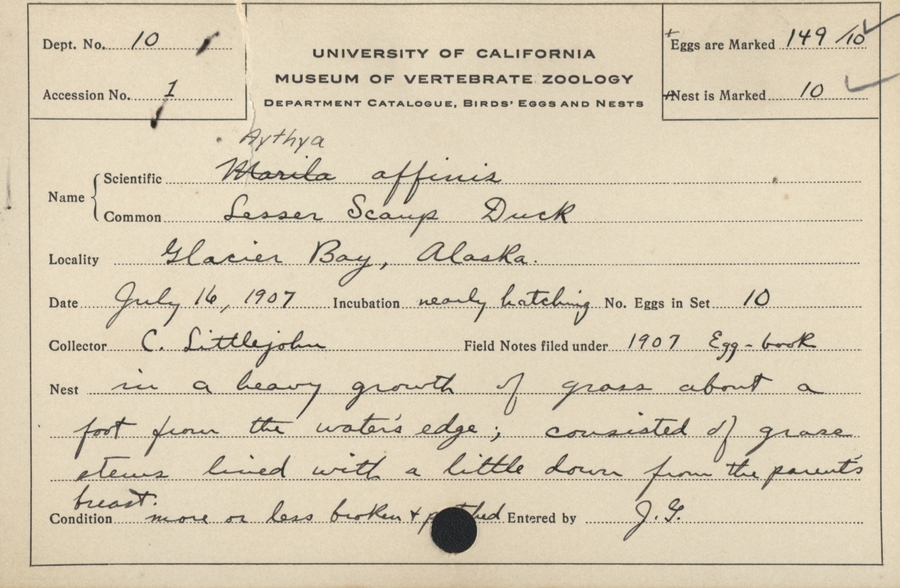 Dept. No. 10
Accession No. 1
UNIVERSITY OF CALIFORNIA
MUSEUM OF VERTEBRATE ZOOLOGY
DEPARTMENT CATALOGUE, BIRDS' EGGS AND NESTS
Eggs are Marked 149/10
Nest is Marked 10
Aythya
Name Scientific Marila affinis
Common Lesser Scaup Duck
Locality Glacier Bay, Alaska.
Date July 16, 1907 Incubation nearly hatching No. Eggs in Set 10
Collector C. Littlejohn Field Notes filed under 1907 Egg-book
Nest in a heavy growth of grass about a
foot from the water's edge; consisted of grass
stems lined with a little down from the parent's
breast.
Condition more or less broken + Entered by J.G.